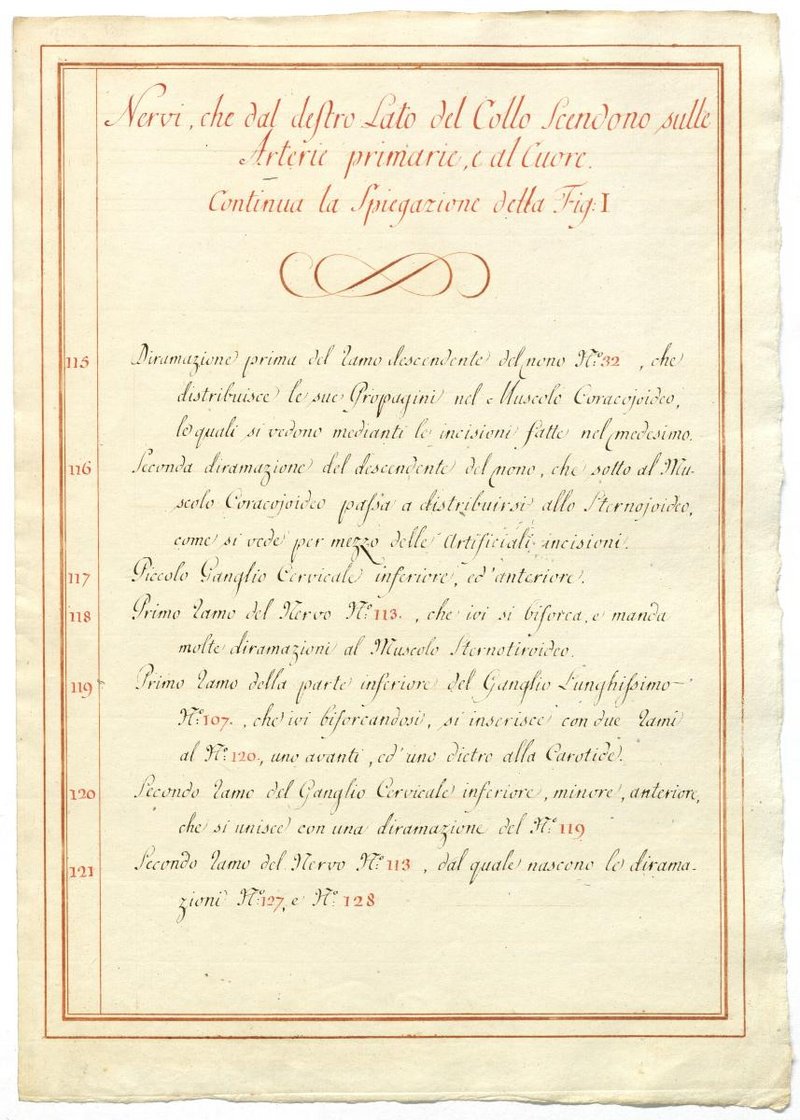 Nervi, che dal destro Lato del Collo Scendono sulle
Arterie primarie, e al Cuore.
Continua la Spiegazione della Fig: I
115 Diramazione prima del Ramo descendente del nono N.º 32, che
distribuisce le sue Propagini nel Muscolo Coracojoideo,
le quali si vedono medianti le incisioni fatte nel medesimo.
116 Seconda diramazione del descendente del nono, che sotto al Mu-
scolo Coracojoideo passa a distribuirsi allo Sternojoideo,
come si vede per mezzo delle Artificiali incisioni.
117 Piccolo Ganglio Cervicale inferiore, ed'anteriore.
118 Primo Ramo del Nervo N.º 113., che ivi si biforca, e manda
molte diramazioni al Muscolo Sternotiroideo.
119 Primo Ramo della parte inferiore del Ganglio Lunghissimo
N.º 107., che ivi biforcandosi, si inserisce con due Rami
al N.º 120., uno avanti, ed'uno dietro alla Carotide.
120 Secondo Ramo del Ganglio Cervicale inferiore, minore, anteriore,
che si unisce con una diramazione del N.º 119
121 Secondo Ramo del Nervo N.º 113, dal quale nascono le dirama-
zioni N.º 127, e N.º 128